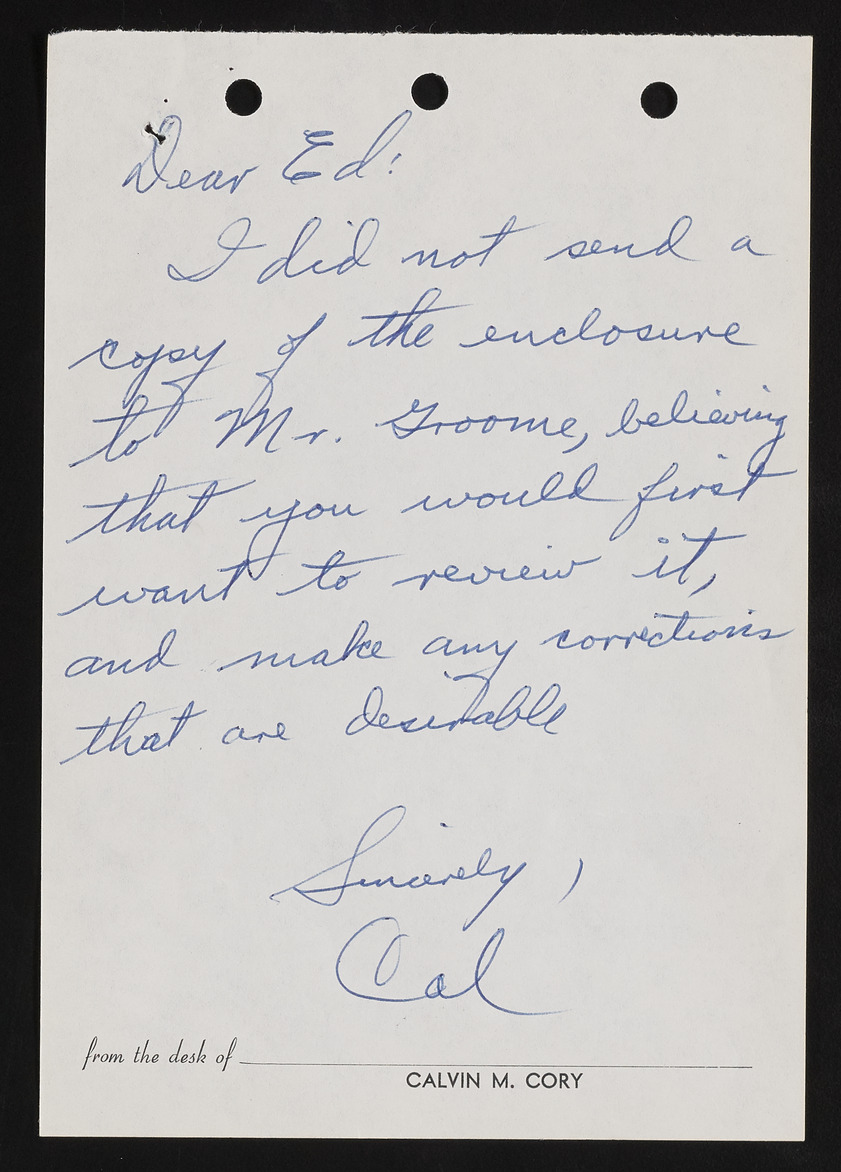 Dear Ed:
I did not send a
copy of the enclosure
to Mr. Groome, believing
that you would first
want to review it,
and make any corrections
that are desirable
Sincerely,
Cal
from the desk of
CALVIN M. CORY